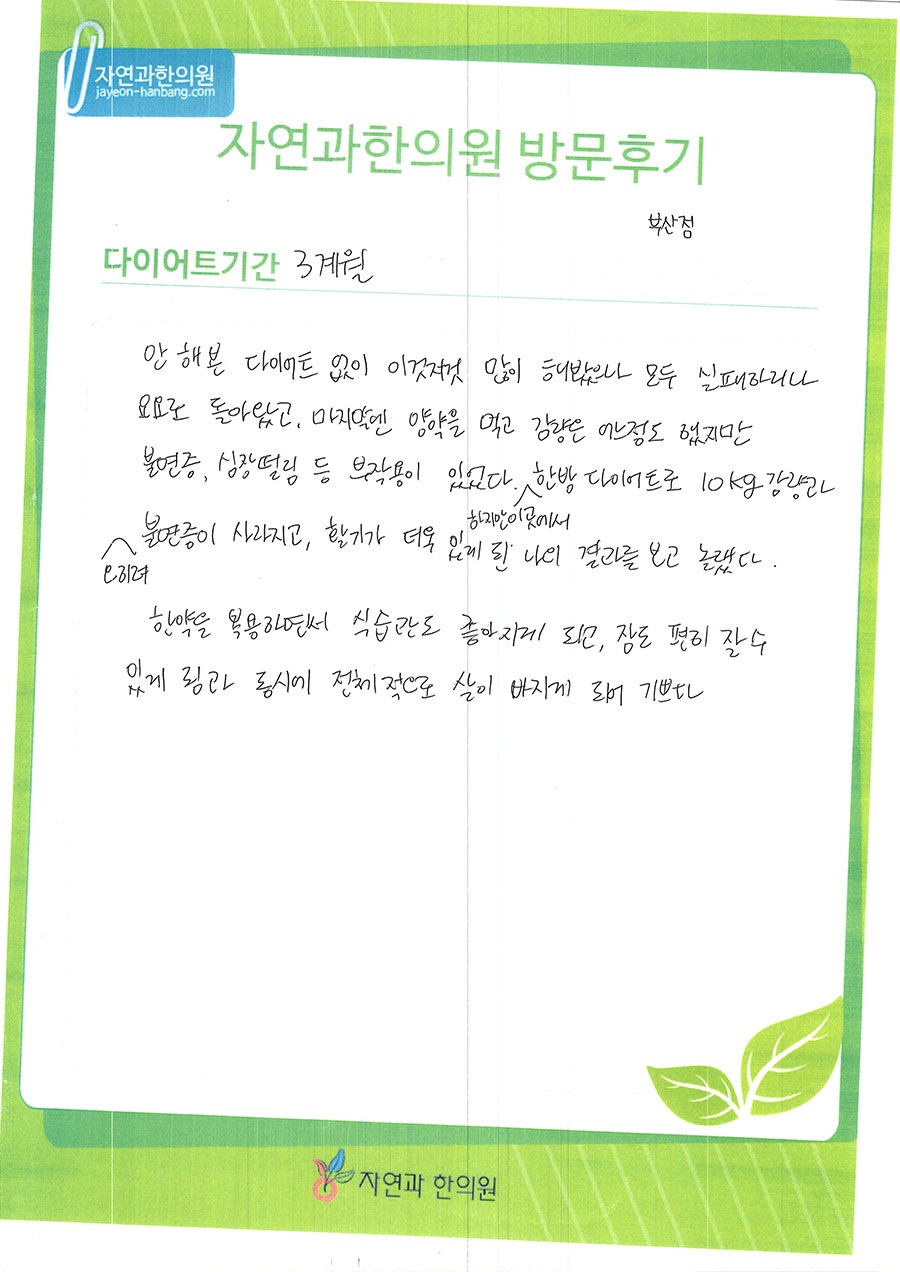 자연과한의원
jayeon-hanbang.com
자연과한의원 방문후기
부산점
다이어트기간 3개월
안 해본 다이어트 없이 이것저것 많이 해봤으나 모두 실패하거나
요요로 돌아왔고, 마지막엔 양약을 먹고 감량은 어느정도 했지만
불면증, 심장떨림 등 부작용이 있었다. 하지만 이곳에서 한방 다이어트로 10kg 감량과
오히려 불면증이 사라지고, 활기가 더욱 있게 된 나의 결과를 보고 놀랬다.
한약을 복용하면서 식습관도 좋아지게 되고, 잠도 편히 잘 수
있게 됨과 동시에 전체적으로 살이 빠지게 되어 기쁘다
자연과 한의원